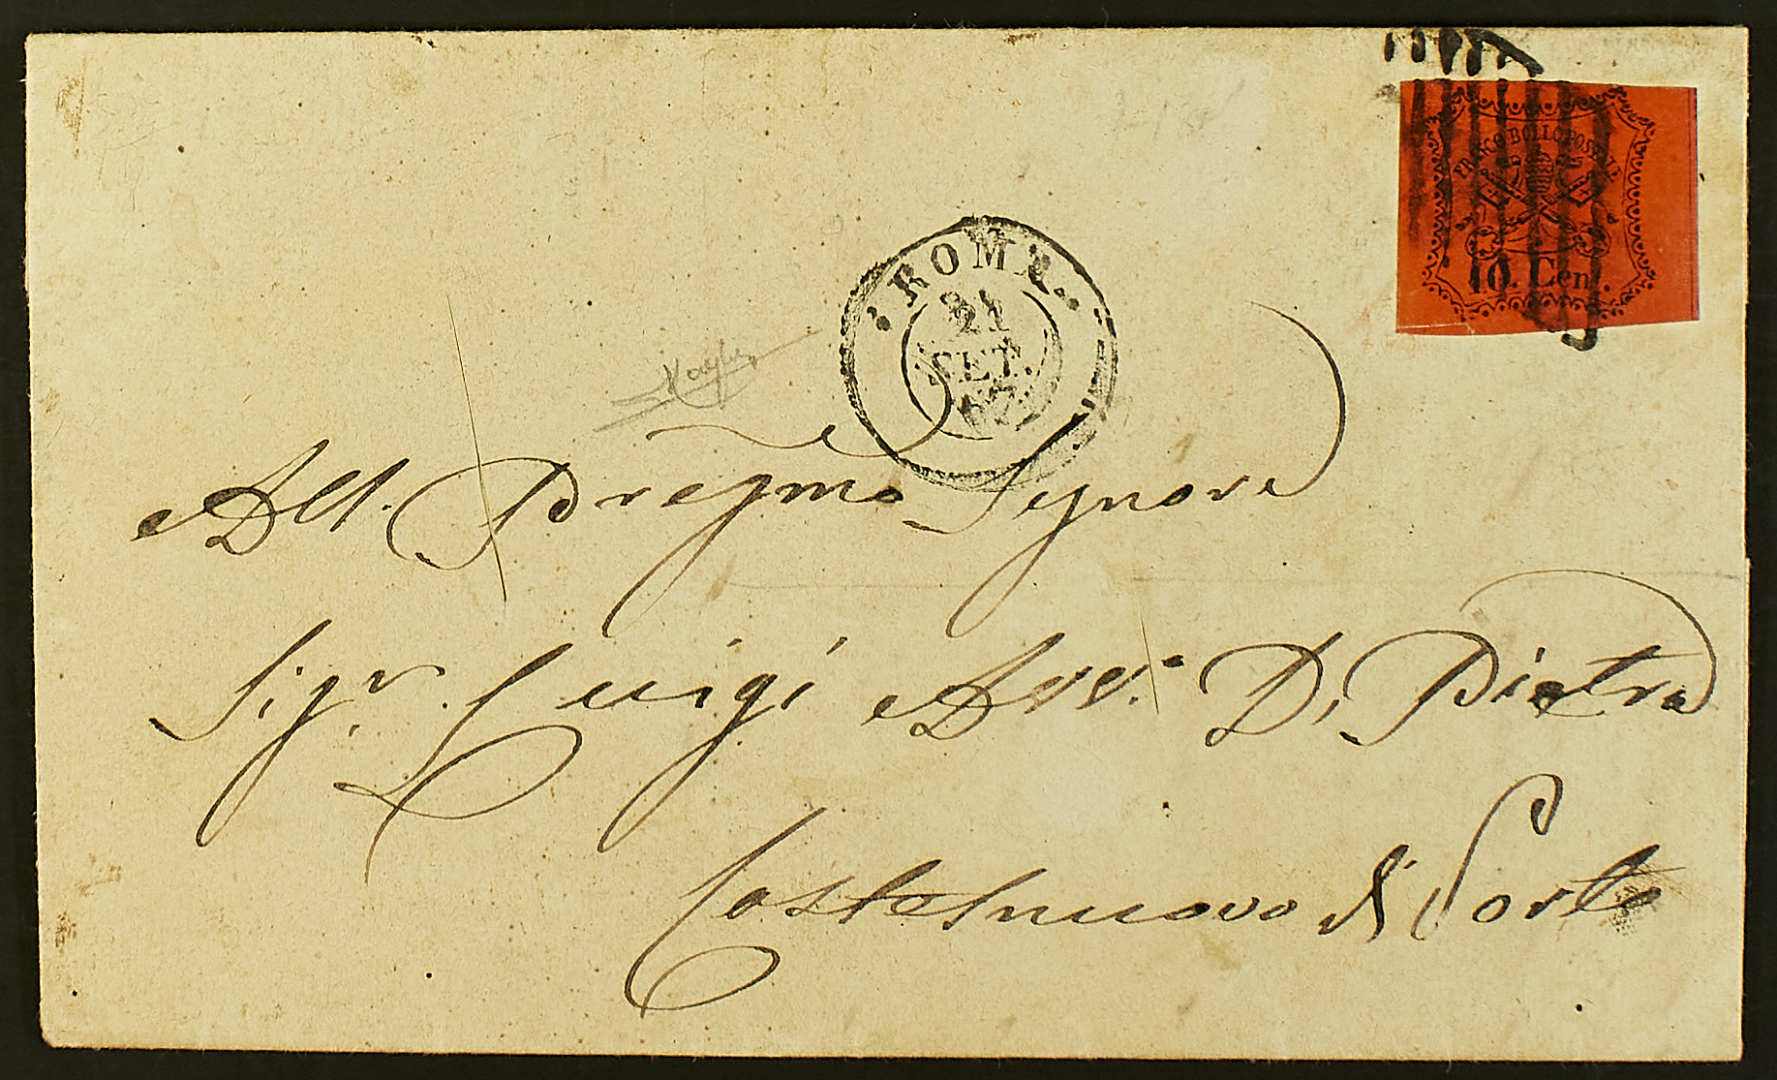 FRANCO BOLLO POSTALE
10. Cent.
ROMA
21
SET.
67
All. Pregmo Signore
Sigr. Luigi Avv.o Di Pietro
Castelnuovo di Porto